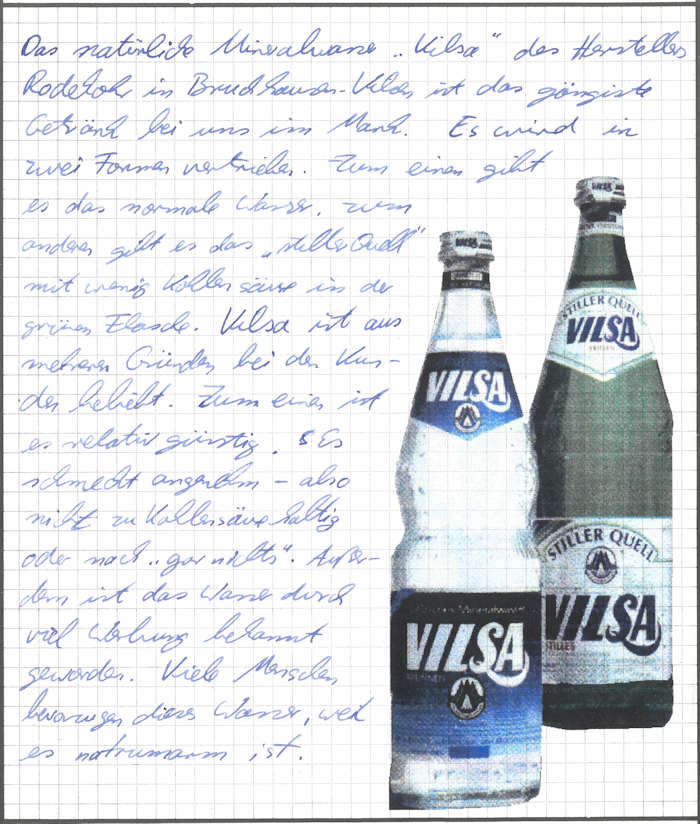 Das natürliche Mineralwasser „Vilsa" des Herstellers
Rodekohr in Bruchhausen-Vilsen ist das gängigste
Getränk bei uns im Markt. Es wird in
zwei Formen vertrieben. Zum einen gibt
es das normale Wasser, zum
anderen gibt es das „stiller Quell"
mit wenig Kohlensäure in der
grünen Flasche. Vilsa ist aus
mehreren Gründen bei den Kun-
den beliebt. Zum einen ist
es relativ günstig. Es
schmeckt angenehm – also
nicht zu Kohlensäurehaltig
oder nach „gar nichts". Außer-
dem ist das Wasser durch
viel Werbung bekannt
geworden. Viele Menschen
bevorzugen dieses Wasser, weil
es natriumarm ist.
VILSA
VILSA
VILSA
BRUNNEN
VILSA
STILLER QUELL
VILSA
BRUNNEN
STILLER QUELL
VILSA
STILLES